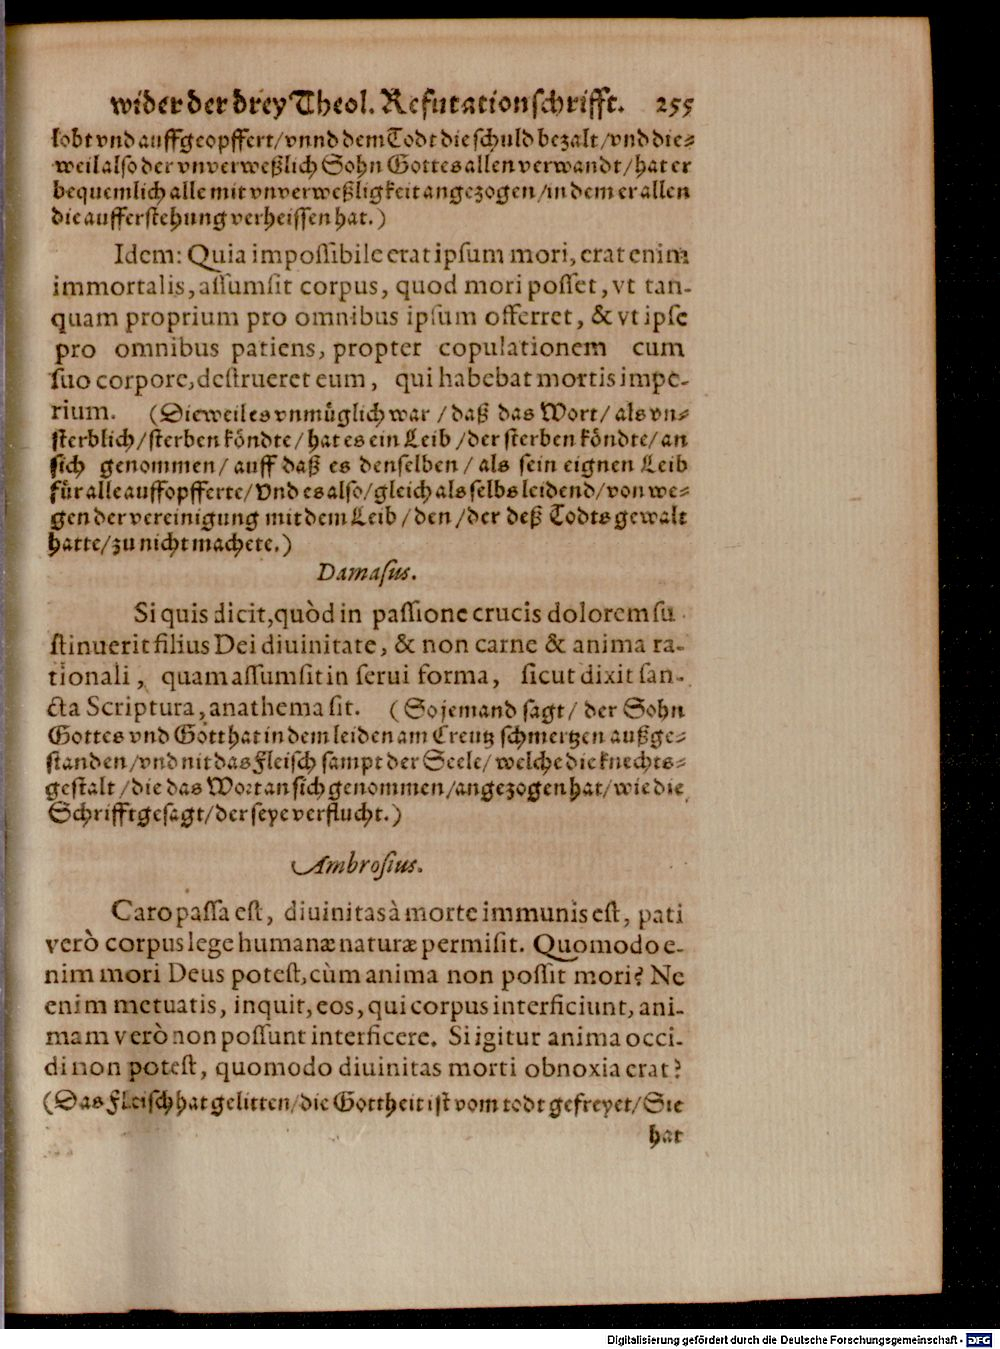 wider der drey Theol. Refutationschrifft. 255
lobt vnd auffgeopffert/vnnd dem Todt die schuld bezalt/vnd die⸗
weil also der vnverweßlich Sohn Gottes allen verwandt/hat er
bequemlich alle mit vnverweßligkeit angezogen/in dem er allen
die aufferstehung verheissen hat.)
Idem: Quia impoſſibile erat ipſum mori, erat enim
immortalis, aſſumſit corpus, quod mori poſſet, vt tan-
quam proprium pro omnibus ipſum offerret, & vt ipſe
pro omnibus patiens, propter copulationem cum
ſuo corpore, deſtrueret eum, qui habebat mortis impe-
rium. (Dieweil es vnmüglich war/daß das Wort/als vn⸗
sterblich/sterben köndte/hat es ein Leib/der sterben köndte/an
sich genommen/auff daß es denselben/als sein eignen Leib
für alle auffopfferte/Vnd es also/gleich als selbs leidend/von we⸗
gen der vereinigung mit dem Leib/den/der deß Todts gewalt
hatte/zu nicht machete.)
Damaſus.
Si quis dicit, quòd in paſſione crucis dolorem ſu-
ſtinuerit filius Dei diuinitate, & non carne & anima ra-
tionali, quam aſſumſit in ſerui forma, ſicut dixit ſan-
cta Scriptura, anathema ſit. (So jemand sagt/der Sohn
Gottes vnd Gott hat in dem leiden am Creutz schmertzen außge⸗
standen/vnd nit das Fleisch sampt der Seele/welche die knechts⸗
gestalt/die das Wort an sich genommen/angezogen hat/wie die
Schrifft gesagt/der seye verflucht.)
Ambroſius.
Caro paſſa eſt, diuinitas à morte immunis eſt, pati
verò corpus lege humanæ naturæ permiſit. Quomodo e-
nim mori Deus poteſt, cùm anima non poſſit mori? Ne
enim metuatis, inquit, eos, qui corpus interficiunt, ani-
mam verò non poſſunt interficere. Si igitur anima occi-
di non poteſt, quomodo diuinitas morti obnoxia erat?
(Das Fleisch hat gelitten/die Gottheit ist vom todt gefreyet/Sie
hat
Digitalisierung gefördert durch die Deutsche Forschungsgemeinschaft - DFG